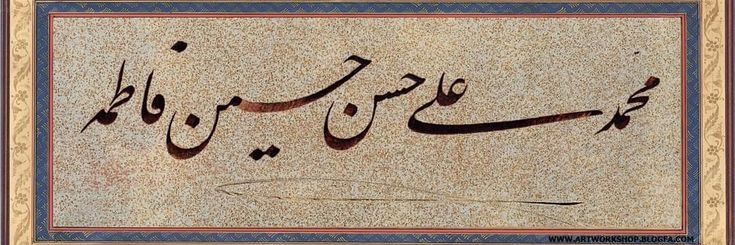 محمد علی حسن حسین فاطمه
WWW.ARTWORKSHOP.BLOGFA.COM